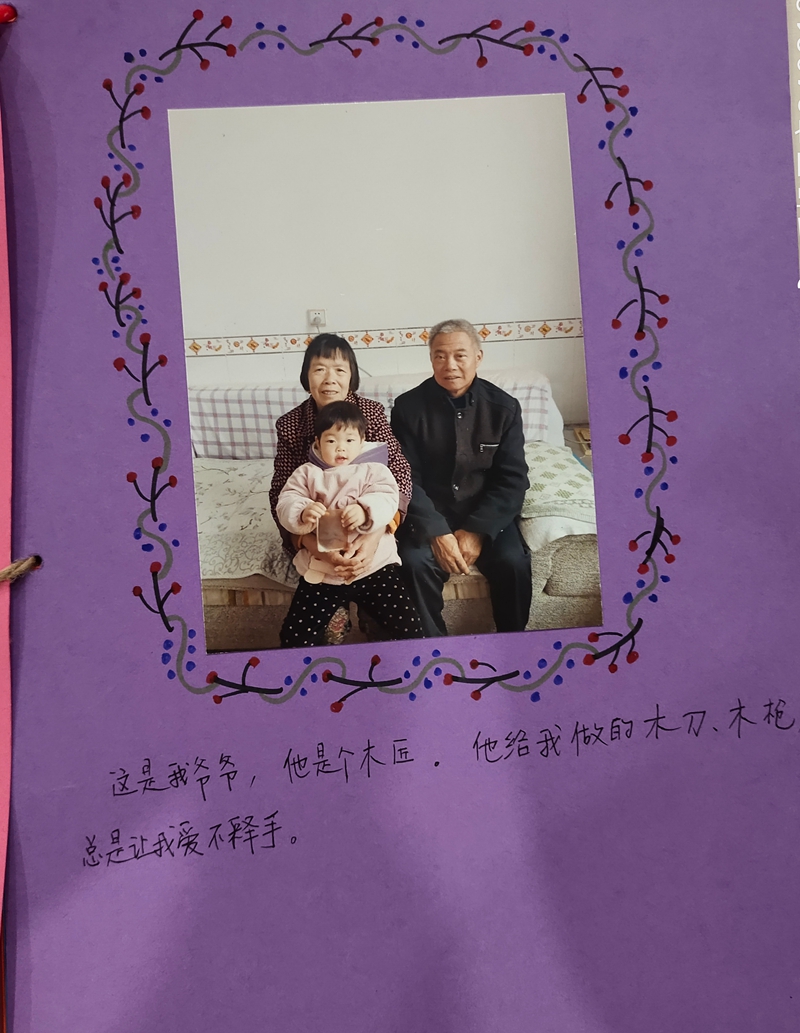 这是我爷爷，他是个木匠。他给我做的木刀、木枪，
总是让我爱不释手。